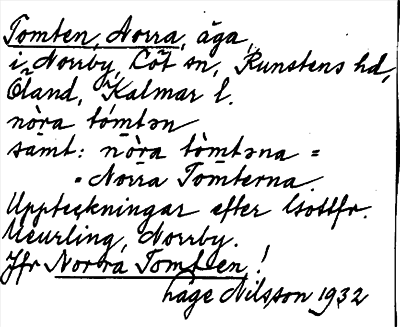 Tomten, Norra, äga,
i Norrby, Löt sn, Runstens hd,
Öland, Kalmar l.
nòra tómtən
samt: nòra tòmtəna =
= Norra Tomterna.
Uppteckningar efter Gottfr.
Meurling, Norrby.
Jfr Norra Tomten!
Håge Nilsson 1932